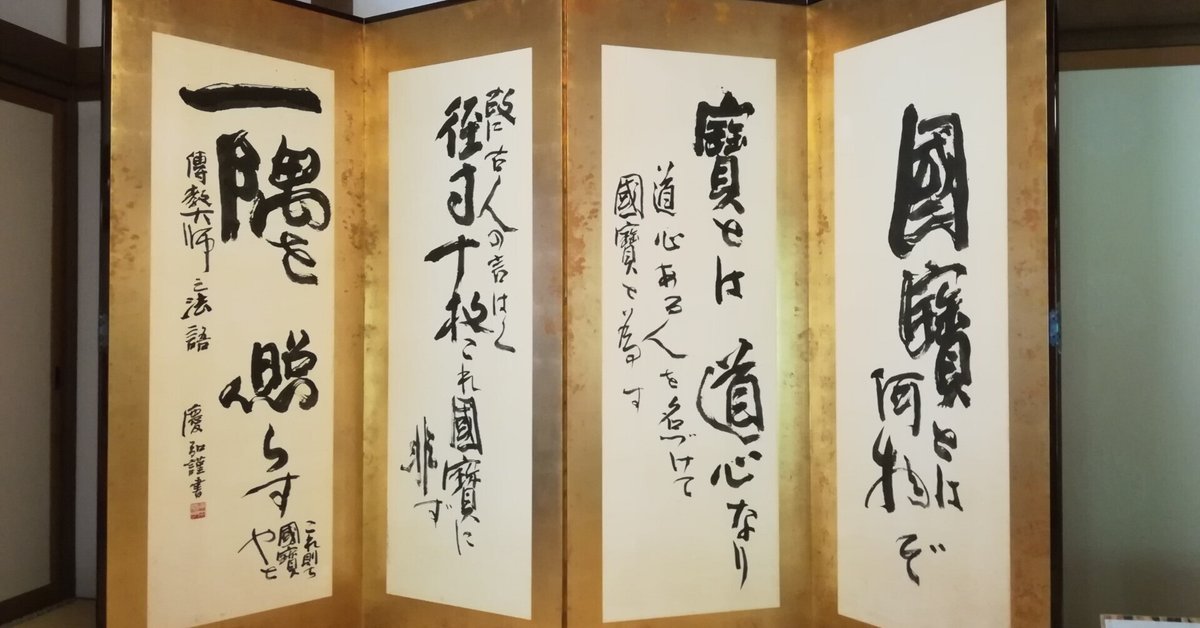 國寶とは
何物ぞ
寶とは道心なり
道心ある人を名づけて
國寶と為す
故に古人の言はく
徑寸十枚これ國寶に
非ず
一隅を照らす
これ則ち
國寶
也と
傳教大師之法語 慶弘謹書